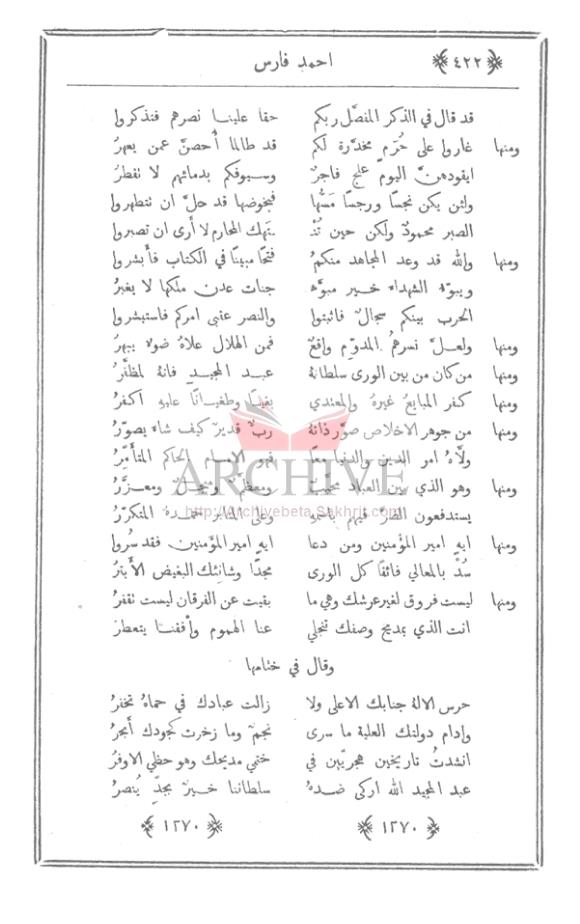 ﴿٤٢٢﴾ احمد فارس
قد قال في الذكر المفصّل ربكم حقا علينا نصرهم فتذكروا
ومنها غاروا على حُرَم مخدّرة لكم قد طالما أُحصنّ عمن يعهرُ
ايقودهنّ اليوم علج فاجرٌ وسيوفكم بدمائهم لا تقطرُ
ولئن يكن نجسًا ورجسًا مسّها فبخوضها قد حلّ ان تتطهروا
الصبر محمودٌ ولكن حين تُنْـ ـتهك المحارم لا أرى ان تصبروا
ومنها والله قد وعد المجاهد منكمُ فتحًا مبينًا في الكتاب فأبشروا
ويبوّء الشهداء خير مبوّء جنات عدن ملكها لا يغبرُ
الحرب بينكم سجالٌ فاثبتوا والنصر عقبى امركم فاستبشروا
ومنها ولعلّ نسرهمُ المدوّم واقعٌ فمن الهلال علاهُ ضوء يبهرُ
ومنها من كان من بين الورى سلطانهُ عبد المجيد فانهُ لمظفّرُ
ومنها كفر المبايع غيرهُ والمعتدي بغيًا وطغيانًا عليهِ اكفرُ
ومنها من جوهر الاخلاص صوّر ذاتهُ ربٌّ قديرٌ كيف شاء يصوّرُ
ولّاهُ امر الدين والدنيا معًا فهو الامام الحاكم المتأمّرُ
ومنها وهو الذي بين العباد محبّبٌ ومعظّمٌ ومبجّلٌ ومعزّرُ
يستدفعون الضرّ فيهم باسمهِ وعلى المنابر حمدهُ المتكرّرُ
ومنها ايهِ امير المؤمنين ومن دعا ايهِ امير المؤمنين فقد سُروا
سُدْ بالمعالي فائقًا كل الورى مجدًا وشانئك البغيض الأبترُ
ومنها ليست فروق لغير عرشك وهي ما بقيت عن الفرقان ليست تقفرُ
انت الذي بمديح وصفك تنجلي عنا الهموم وأفقنا يتعطرُ
وقال في ختامها
حرس الالهُ جنابك الاعلى ولا زالت عبادك في حماهُ تخفرُ
وادام دولتك العلية ما سرى نجمٌ وما زخرت كجودك أبحرُ
انشدتُ تاريخين هجريّين في ختمي مديحك وهو حظي الاوفرُ
عبد المجيد الله اركى ضدهُ سلطاننا خيرٌ بجدٍّ يُنصرُ
﴿١٢٧٠﴾ ﴿١٢٧٠﴾
ARCHIVE
http://Archivebeta.Sakhrit.com